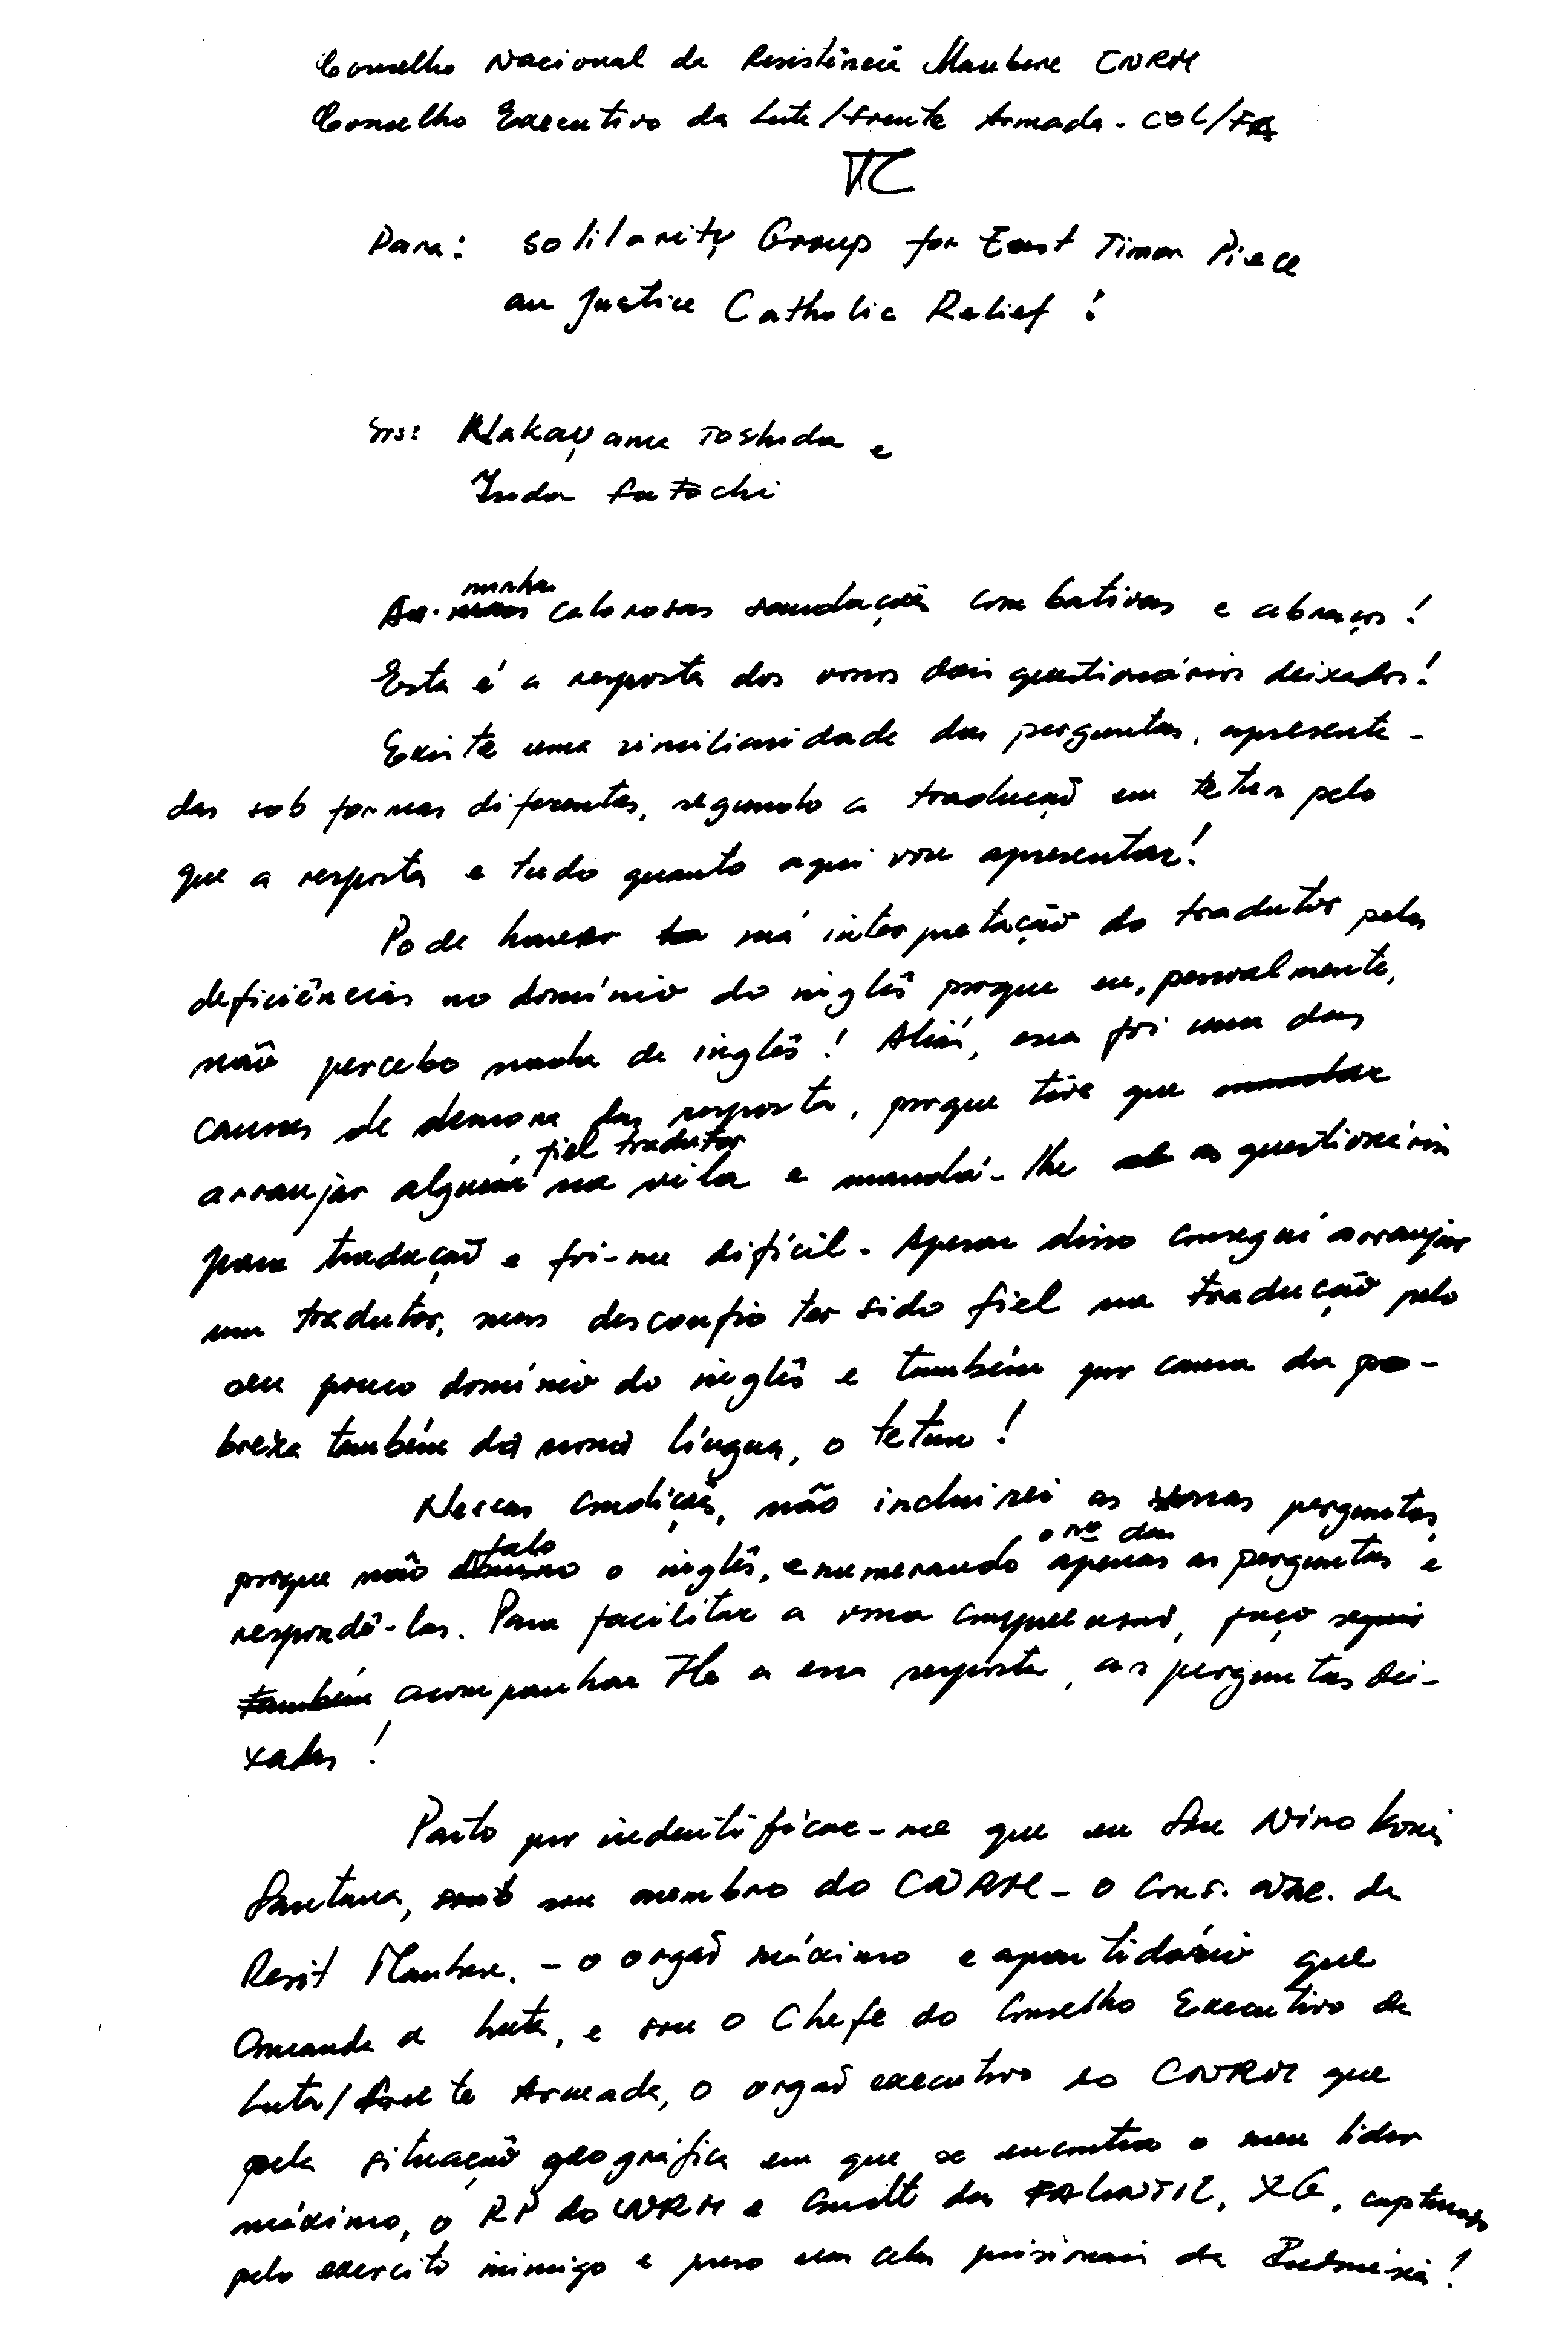 Conselho Nacional da Resistência Maubere CNRM
Conselho Executivo da Luta/Frente Armada - CEL/FA
Para: Solilarity Group for East Timor Piece
an Justice Catholic Relief!
Srs: Nakayama Toshida e
minhas
As calorosas saudações combativas e abraços!
Esta é a resposta dos vossos dois questionários deixados!
Existe uma similiaridade das perguntas, apresenta-
das sob formas diferentes, segundo a tradução em tetun pelo
que a resposta e tudo quanto aqui vou apresentar!
Pode haver má interpretação do tradutor pelas
deficiências no domínio do inglês porque eu, pessoalmente,
não percebo nada de inglês! Aliás, essa foi uma das
causas de demora das resposta, porque tive que mandar
, fiel tradutor
arranjar alguém na vila e mandá-lhe os questionários
para tradução e foi-me difícil. Apesar disso consegui arranjar
um tradutor, mas desconfio ter sido fiel na tradução pelo
seu pouco domínio do inglês e também por causa da po-
breza também da nossa língua, o tetun!
Nessas condições, não incluirei as vossas perguntas,
falo
o nº das
porque não domino o inglês, enumerando apenas as perguntas e
respondê-las. Para facilitar a vossa compreensão, faço seguir
também acompanhar a essa resposta, as perguntas dei-
xadas!
Parto por indentificar-me que eu sou Nino Konis
Santana, sou membro do CNRM - o Cons. Nac. da
Resist Maubere. - o orgão máximo e apartidário que
Comanda a Luta, e sou o Chefe do Conselho Executivo da
Luta/Frente Armada, o orgão executivo do CNRM que
pela situação geográfica em que se encontra o meu lider
máximo, o RP do CNRM e Cmdt das FALINTIL, XG, capturado
pelo exercito inimigo e preso em celas prisionais da Indonésia!